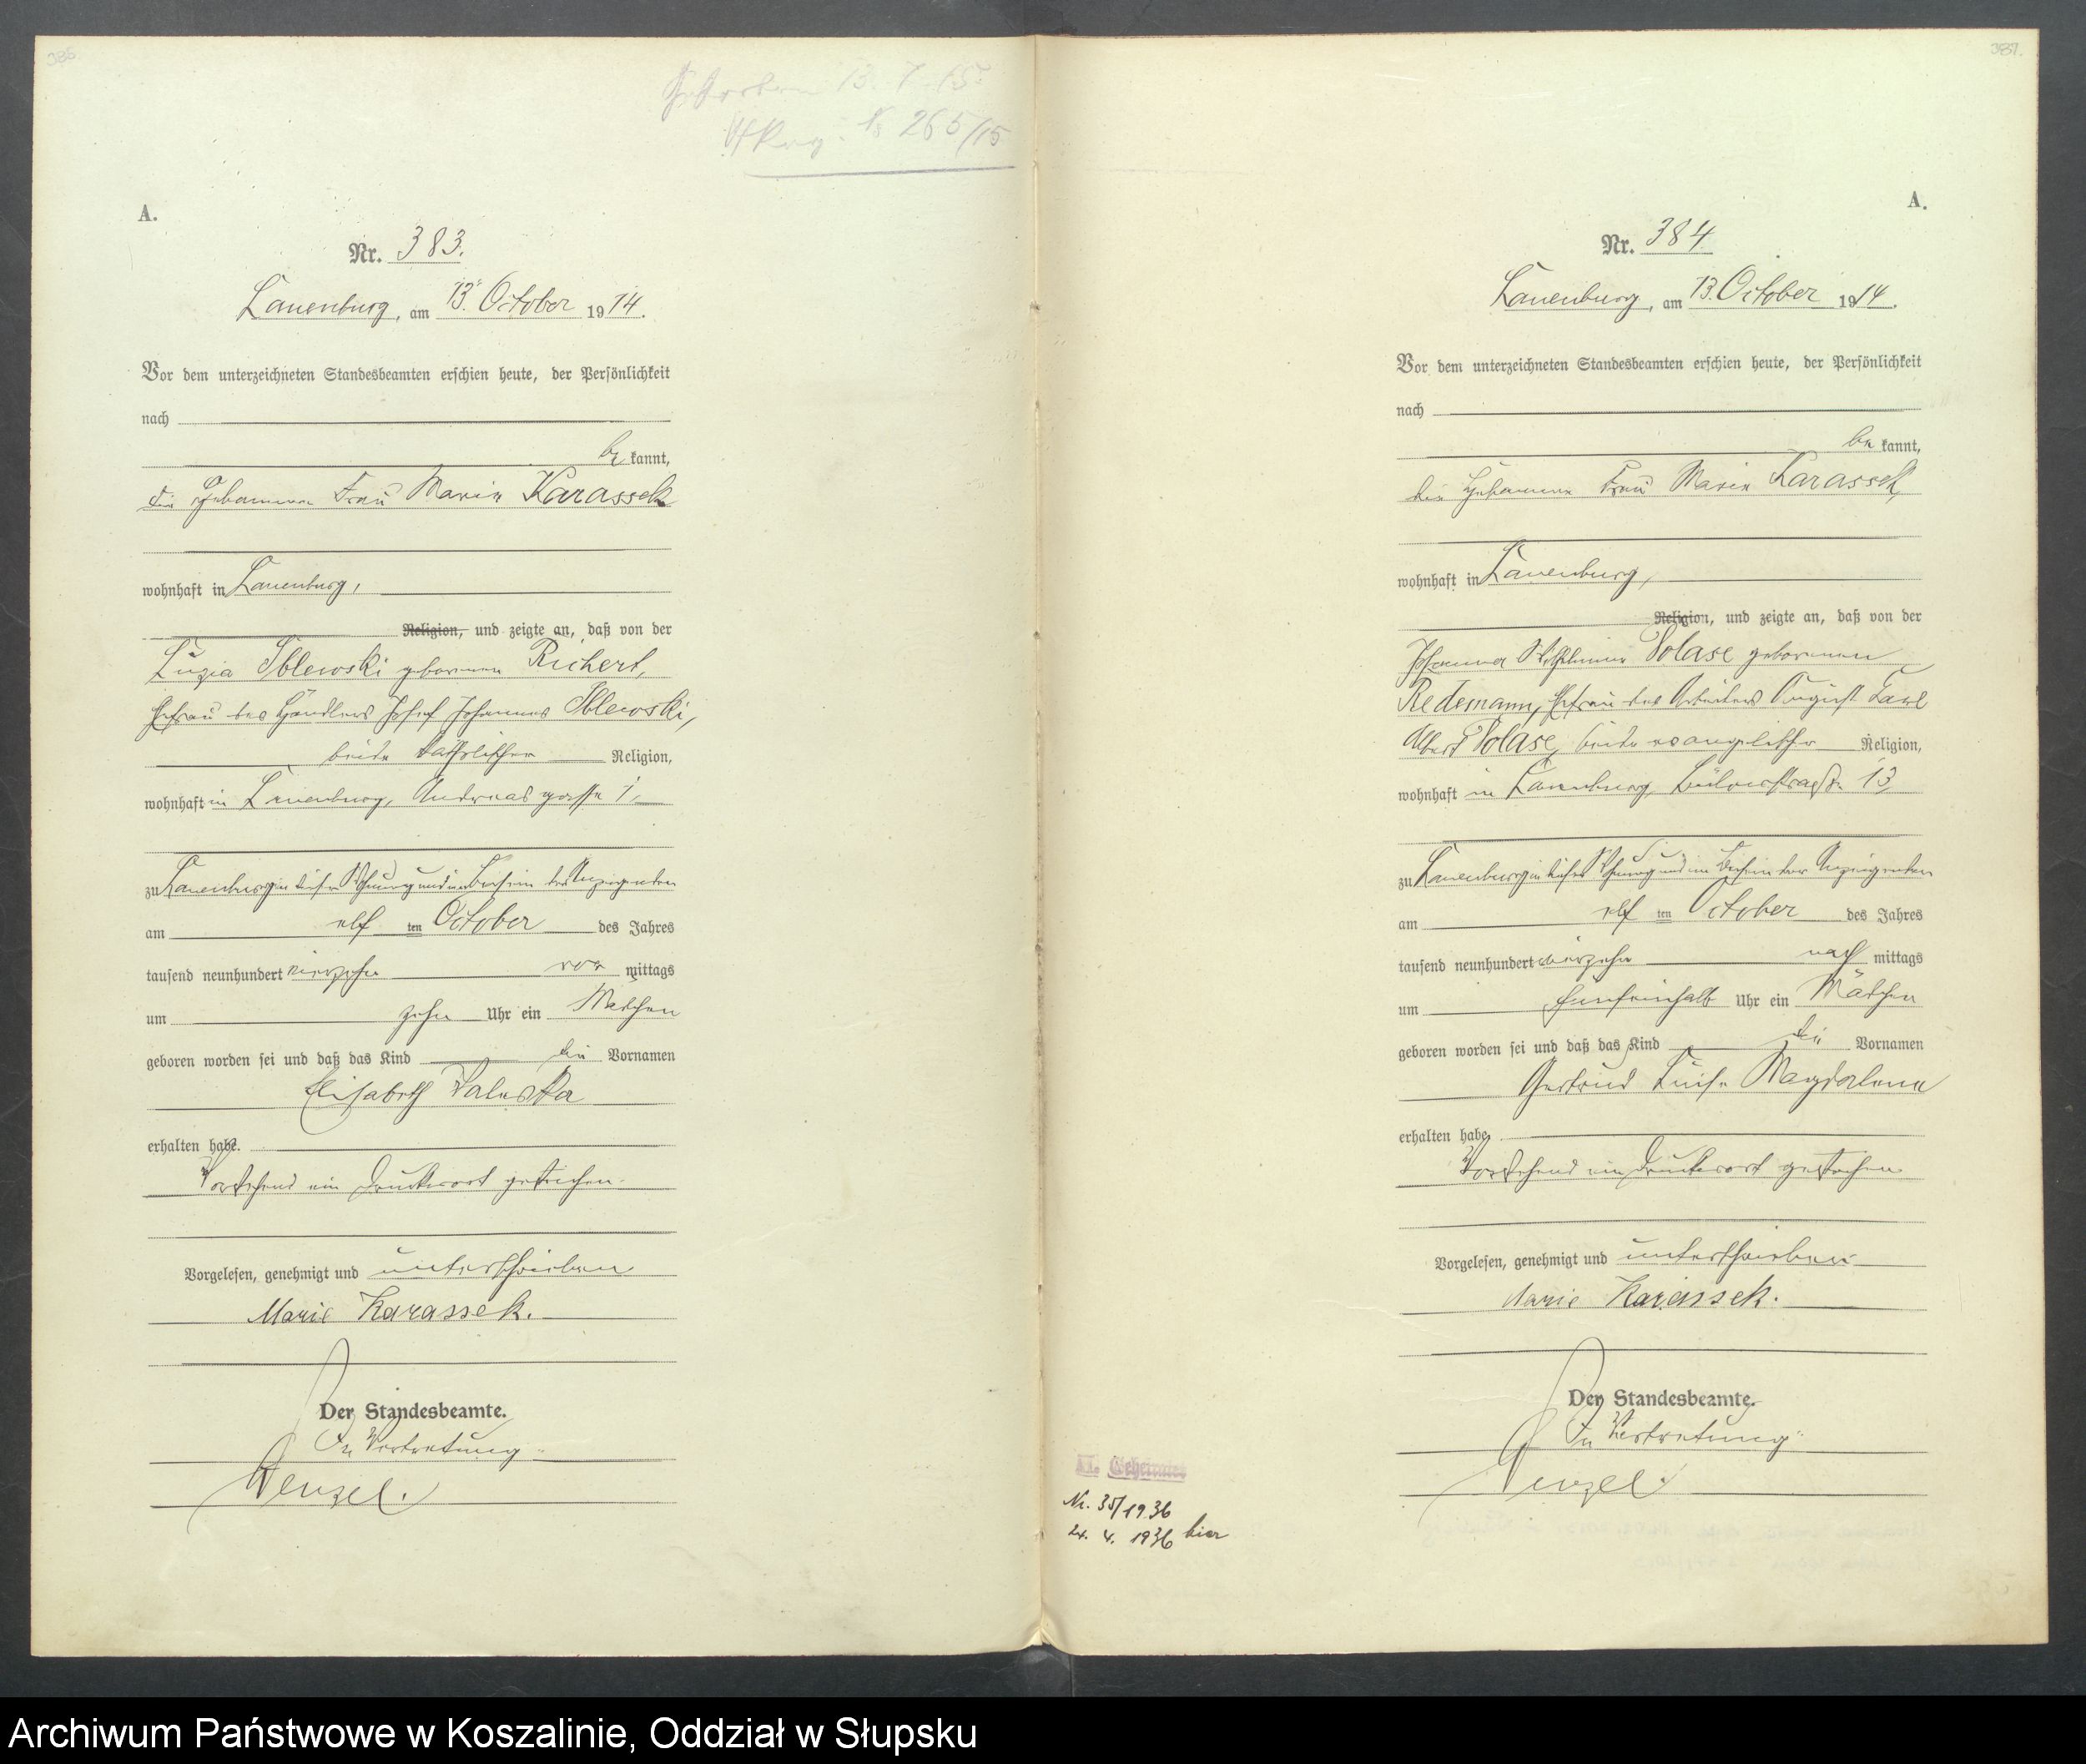 386
Gestorben 13.7.15.
№ 265/15
A.
Nr. 383.
Lauenburg, am 13. October 1914.
Vor dem unterzeichneten Standesbeamten erschien heute, der Persönlichkeit
nach
be kannt,
die Hebamme Frau Marie Karassek
wohnhaft in Lauenburg,
Religion, und zeigte an, daß von der
Luzia Iblewski geborenen Richert,
Ehefrau des Händlers Josef Johannes Iblewski,
beide katholischer Religion,
wohnhaft in Lauenburg, Andreasgasse 1,
zu Lauenburg in dieser Wohnung und im Beisein der Anzeigenden
am elf ten October des Jahres
tausend neunhundert vierzehn vor mittags
um zehn Uhr ein Mädchen
geboren worden sei und daß das Kind die Vornamen
Elisabeth Valeska
erhalten habe.
Vorstehend ein Druckwort gestrichen.
Vorgelesen, genehmigt und unterschrieben
Marie Karassek.
Der Standesbeamte.
In Vertretung
Wenzel.
387.
A.
Nr. 384
Lauenburg, am 13. October 1914.
Vor dem unterzeichneten Standesbeamten erschien heute, der Persönlichkeit
nach
be kannt,
die Hebamme Frau Marie Karassek,
wohnhaft in Lauenburg,
Religion, und zeigte an, daß von der
Johanna Wilhelmine Polase geborenen
Redemann, Ehefrau des Arbeiters August Carl
Albert Polase, beide evangelischer Religion,
wohnhaft in Lauenburg, Bülowstraße 13,
zu Lauenburg in dieser Wohnung und im Beisein der Anzeigenden
am elf ten October des Jahres
tausend neunhundert vierzehn nach mittags
um fünfeinhalb Uhr ein Mädchen
geboren worden sei und daß das Kind die Vornamen
Gertrud Luise Magdalena
erhalten habe.
Vorstehend ein Druckwort gestrichen
Vorgelesen, genehmigt und unterschrieben
Marie Karassek.
Der Standesbeamte.
In Vertretung
Wenzel.
Geheiratet
Nr. 35/1936
24. 4. 1936 hier
Archiwum Państwowe w Koszalinie, Oddział w Słupsku